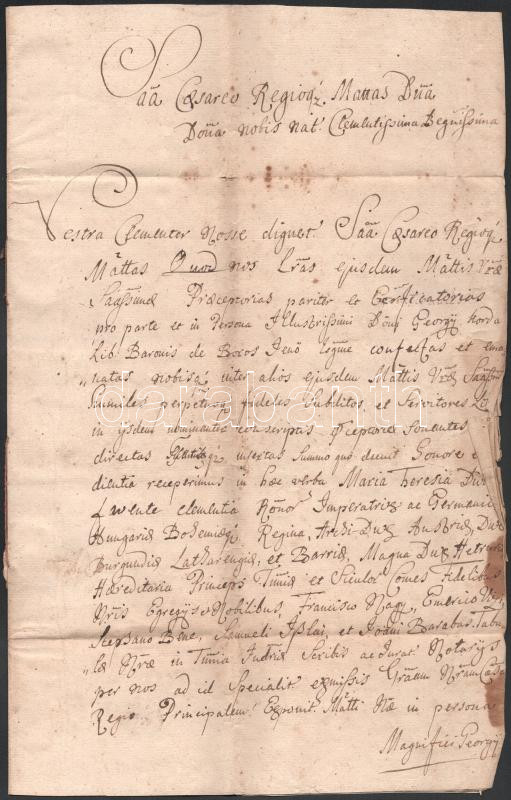 Sãa Cæsareo Regioq́ꝫ Mattas Dña
Doña nobis Nat. Clementissima Begnissima
Vestra Clementer Nosse dignet' Sãa Cæsareo Regioq́ꝫ
Mattas Quod nos Lr̃as ejusdem Mattis Vr̃æ
Præceptorias pariter et Certificatorias
pro parte et in Persona Illustrissimi Dõni Georgÿ Korda
Lib. Baronis de Boros Jenö confectas et ema
natas nobisq́ꝫ inter alios ejusdem Mattis Vr̃æ
humiles perpetuosqꝫ fideles Subditos, et Servitores
in ijsdem nominanter conscriptis
directas summo quo decuit honore
dientia receperimus in hæc verba Maria Theresia
Clementia Imperatrix ac Germaniæ
Hungariæ Bohemiæqꝫ Regina, Archi-Dux Austriæ, Dux
Burgundiæ Lotharengiæ, et Barriæ, Magna Dux Hetruriæ
Hæreditaria Princeps Tr̃niæ et Siculor̃ Comes Fidelibus
Nr̃is Egregÿs et Nobilibus Francisco Nagy, Emerico
Stephano Bene, Samueli et Joanni Barabas. Tabu
„læ Nr̃æ in Tr̃nia Scribis ac Jurat. Notarÿs
per nos ad id Specialit. exmissis Gr̃am Nr̃am
Regio Principalem. Exponit. Matti Nr̃æ in persona
Magnifici Georgÿ
darabanth